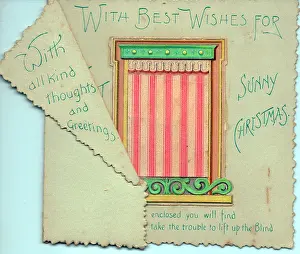 With Best Wishes for
Sunny
Christmas.
With
all kind
thoughts
and
Greetings.
enclosed you will find
take the trouble to lift up the Blind.